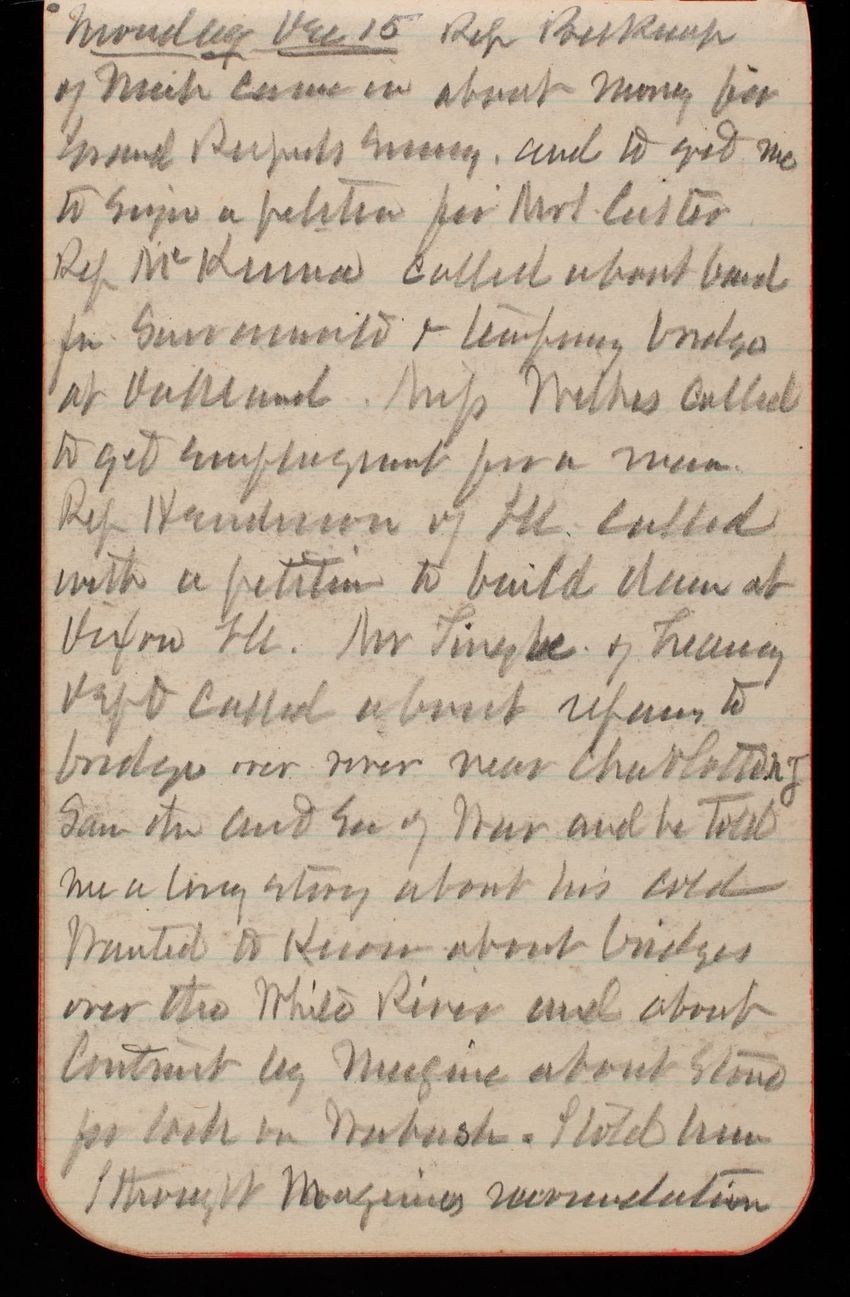 Monday Dec 15 Rep Belknap
of Mich came in about money for
Grand Rapids Survey. and to get me
to sign a petition for Mrs. Custer
Rep McKenna called about land
for Sacramento & temporary bridge
at Oakland. Miss Wilkes called
to get employment for a man.
Rep Henderson of Ill. called
with a petition to build dam at
Dixon Ill. Mr Tingle of Treasury
Dept called about repairs to
bridge over river near Charlotte NY
Saw the and Sec of War and he told
me a long story about his cold
Wanted to know about bridges
over the White River and about
Contract by about Stone
for lock on Wabash. I told him
I thought recommendation